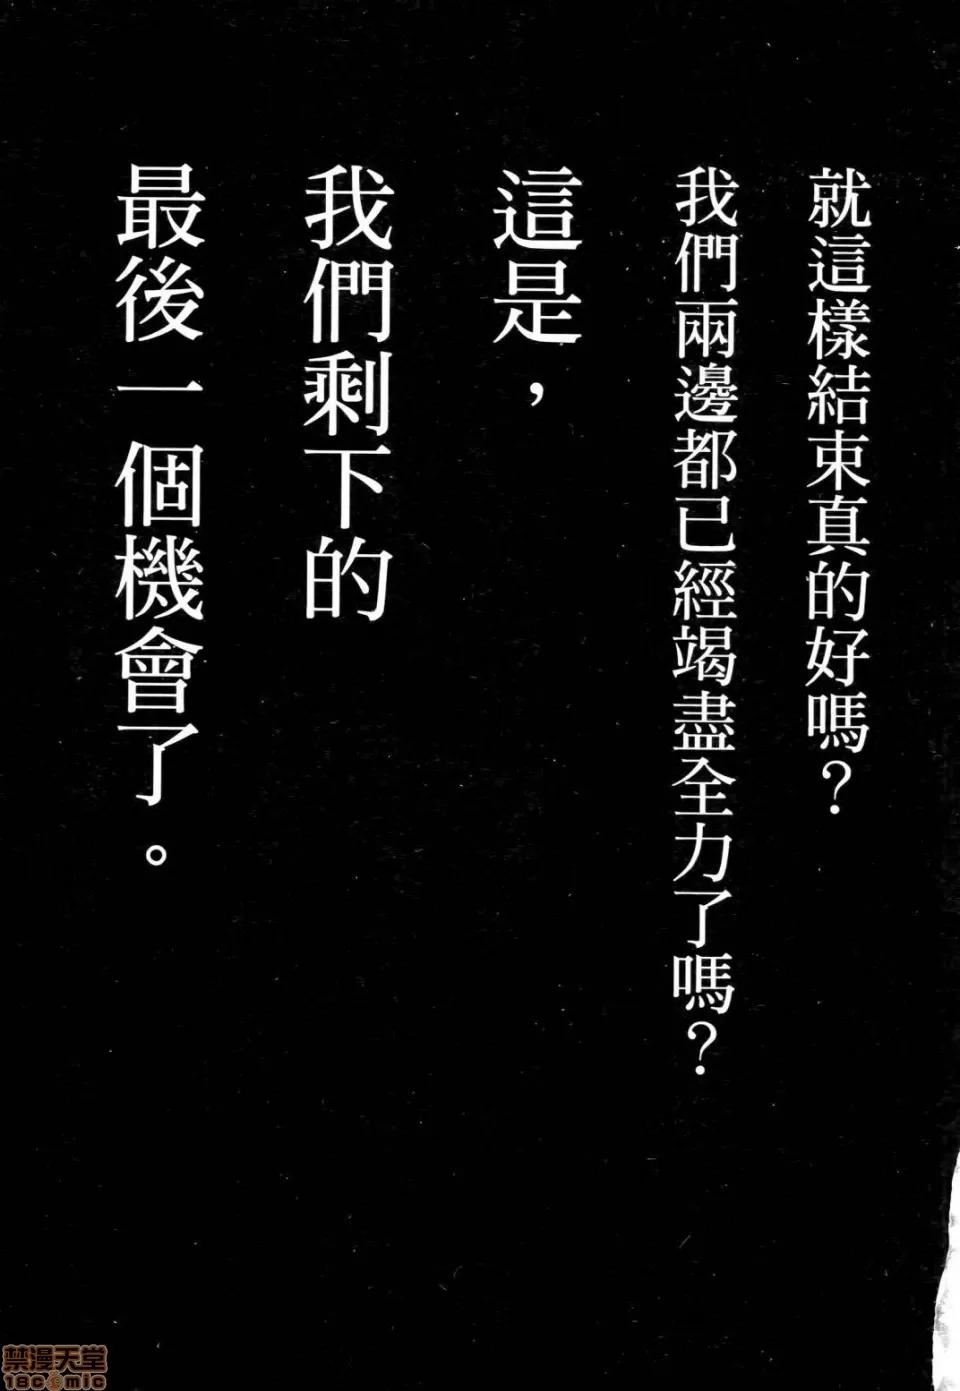 就這樣結束真的好嗎？
我們兩邊都已經竭盡全力了嗎？
這是，
我們剩下的
最後一個機會了。
禁漫天堂
18comic